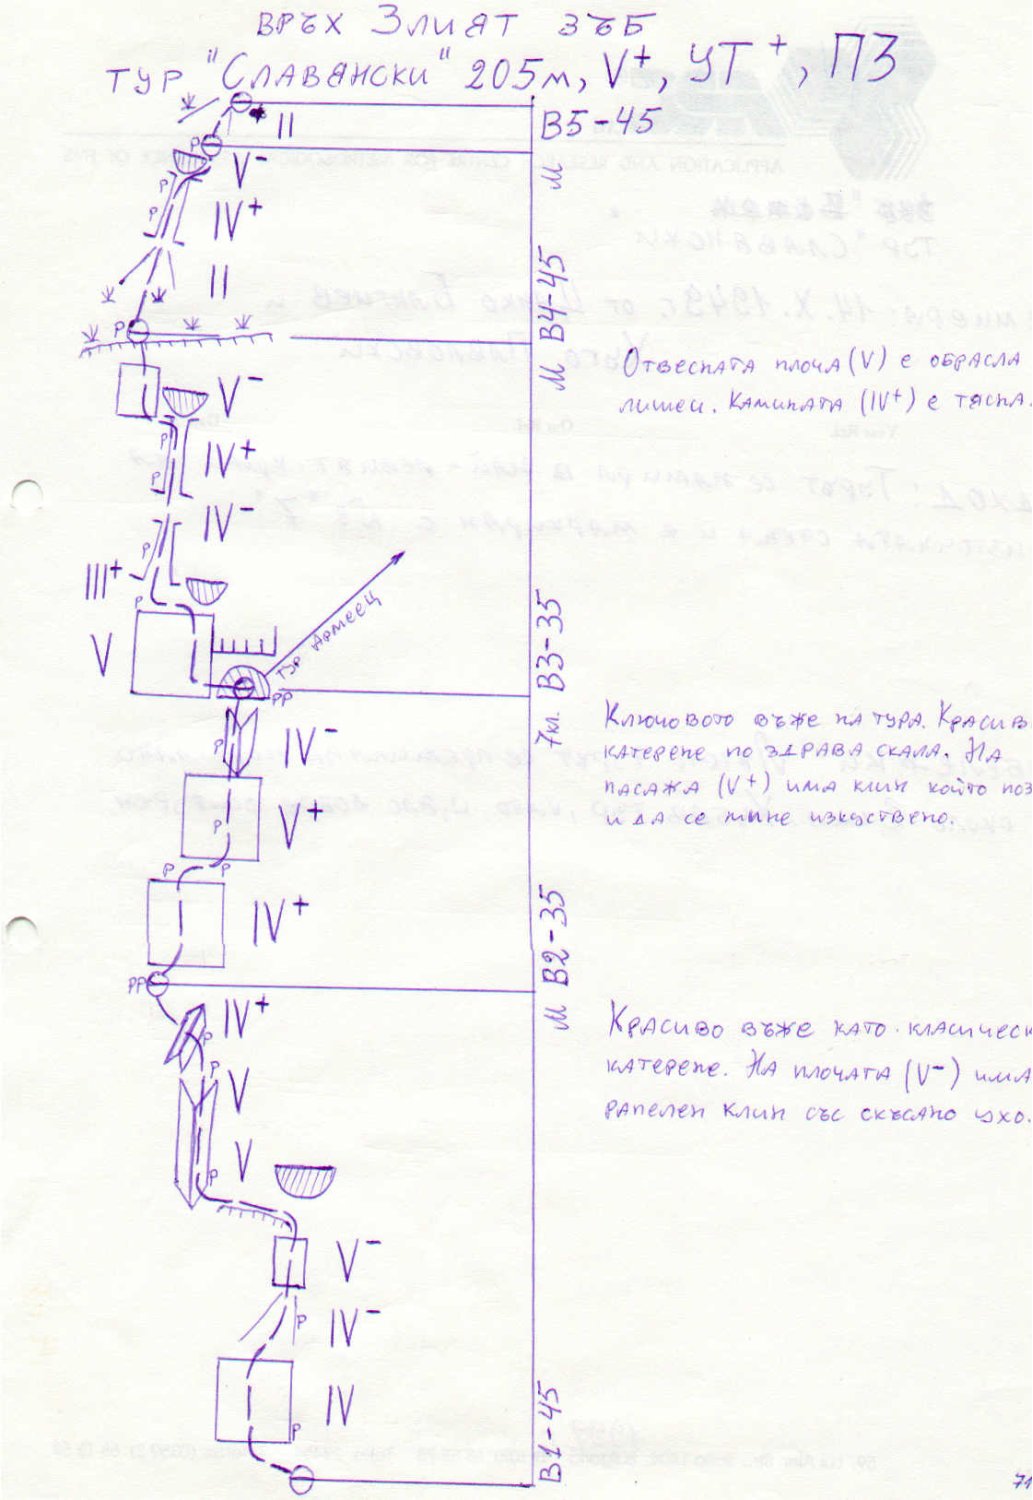 ВРЪХ ЗЛИЯТ ЗЪБ
ТУР "СЛАВЯНСКИ" 205м, V+, УТ+, ПЗ
II
В5-45
P
V-
М
P
IV+
II
В4-45
P
М
ОТВЕСНАТА ПЛОЧА (V) Е ОБРАСЛА
ЛИШЕИ. КАМИНАТА (IV+) Е ТЯСНА.
V-
P
IV+
IV-
P
III+
P
V
ТУР АРМЕЕЦ
В3-35
PP
7кл.
КЛЮЧОВОТО ВЪЖЕ НА ТУРА. КРАСИВ
КАТЕРЕНЕ ПО ЗДРАВА СКАЛА. НА
ПАСАЖА (V+) ИМА КЛИН КОЙТО ПОЗ
И ДА СЕ МИНЕ ИЗКУСТВЕНО.
P
IV-
P
V+
P P
IV+
В2-35
PP
М
IV+
P
P
V
КРАСИВО ВЪЖЕ КАТО КЛАСИЧЕСК
КАТЕРЕНЕ. НА ПЛОЧАТА (V-) ИМА
РАПЕЛЕН КЛИН СЪС СКЪСАНО УХО.
V
P
V-
P
IV-
IV
P
В1-45
71